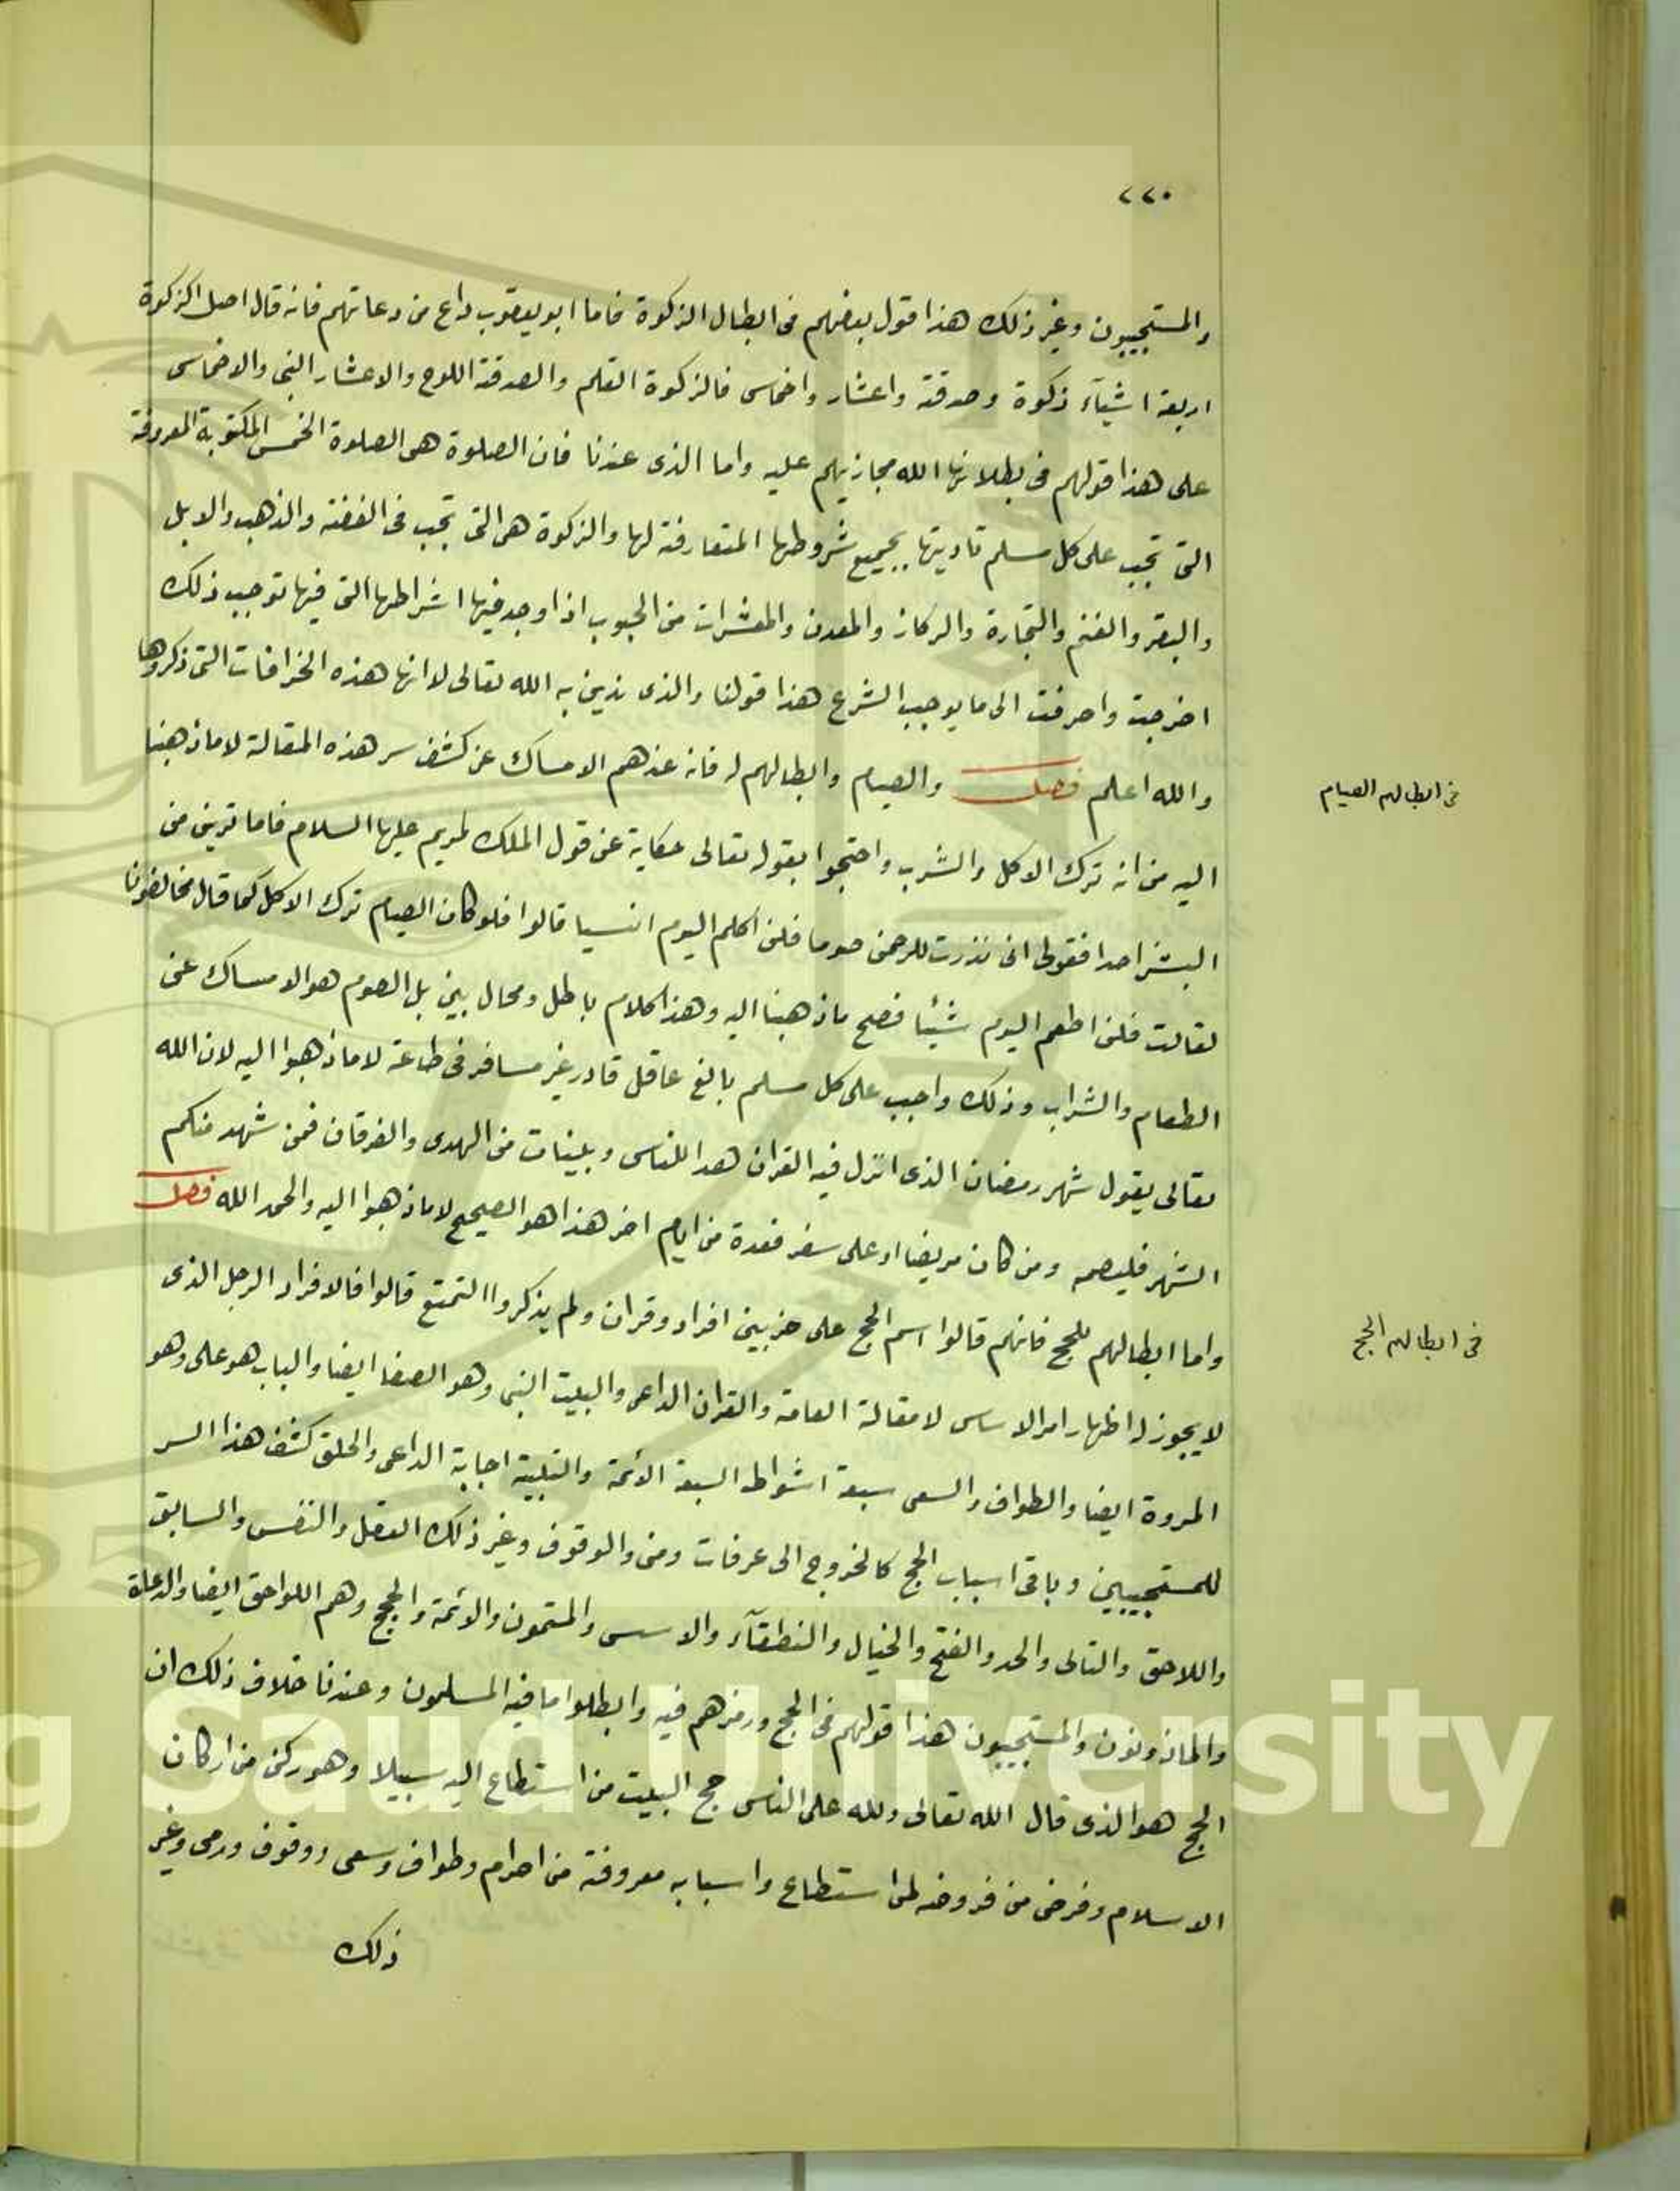 ٢٢٠
والمستجيبون وغير ذلك هذا قول بعضهم فى ابطال الزكوة فاما ابو يعقوب داع من دعاتهم فانه قال اصل الزكوة
اربعة اشيآء زكوة وصدقة واعشار واخماس فالزكوة القلم والصدقة اللوح والاعشار النبى والاخماس
على هذا قولهم فى بطلانها الله مجازيهم عليه واما الذى عندنا فان الصلوة هى الصلوة الخمس المكتوبة المعروفة
التى تجب على كل مسلم تاديتها بجميع شروطها المتعارفة لها والزكوة هى التى تجب فى الفضة والذهب والابل
والبقر والغنم والتجارة والركاز والمعدن والمعشرات من الحبوب اذا وجد فيها اشراطها التى فيها توجب ذلك
اخرجت واصرفت الى ما يوجب الشرع هذا قولنا والذى ندين به الله تعالى لا انها هذه الخرافات التى ذكروها
والله اعلم فصل والصيام وابطالهم له فانه عندهم الامساك عن كشف سر هذه المقالة لا ما ذهبنا
فى ابطالهم الصيام
اليه من انه ترك الاكل والشرب واحتجوا بقوله تعالى حكاية عن قول الملك لمريم عليها السلام فاما ترين من
البشر احدا فقولى انى نذرت للرحمن صوما فلن اكلم اليوم انسيا قالوا فلو كان الصيام ترك الاكل كما قال مخالفونا
لقالت فلن اطعم اليوم شيئا فصح ما ذهبنا اليه وهذا كلام باطل ومحال بين بل الصوم هو الامساك عن
الطعام والشراب وذلك واجب على كل مسلم بالغ عاقل قادر غير مسافر فى طاعة لا ما ذهبوا اليه لان الله
تعالى يقول شهر رمضان الذى انزل فيه القران هدا للناس وبينات من الهدى والفرقان فمن شهد منكم
الشهر فليصمه ومن كان مريضا او على سفر فعدة من ايام اخر هذا هو الصحيح لا ما ذهبوا اليه والحمد الله فصل
واما ابطالهم للحج فانهم قالوا اسم الحج على ضربين افراد وقران ولم يذكروا التمتع قالوا فالافراد الرجل الذى
فى ابطالهم الحج
لا يجوز له اظهار امر الاساس لا مقالة العامة والقران الداعى والبيت النبى وهو الصفا ايضا والباب هو على وهو
المروة ايضا والطواف والسعى سبعة اشواط السبعة الائمة والتلبية اجابة الداعى والحلق كشف هذا السر
للمستجيبين وباقى اسباب الحج كالخروج الى عرفات ومنى والوقوف وغير ذلك العقل والنفس والسابق
واللاحق والتالى والجد والفتح والخيال والنطقآء والاسس والمتمون والائمة والحجج وهم اللواحق ايضا والدعاة
والماذونون والمستجيبون هذا قولهم فى الحج ورمزهم فيه وابطلوا ما فيه المسلمون وعندنا خلاف ذلك ان
الحج هو الذى قال الله تعالى ولله على الناس حج البيت من استطاع اليه سبيلا وهو ركن من اركان
الاسلام وفرض من فروضه لمن استطاع واسبابه معروفة من احرام وطواف وسعى ووقوف ورمى وغير
ذلك
g Saud University